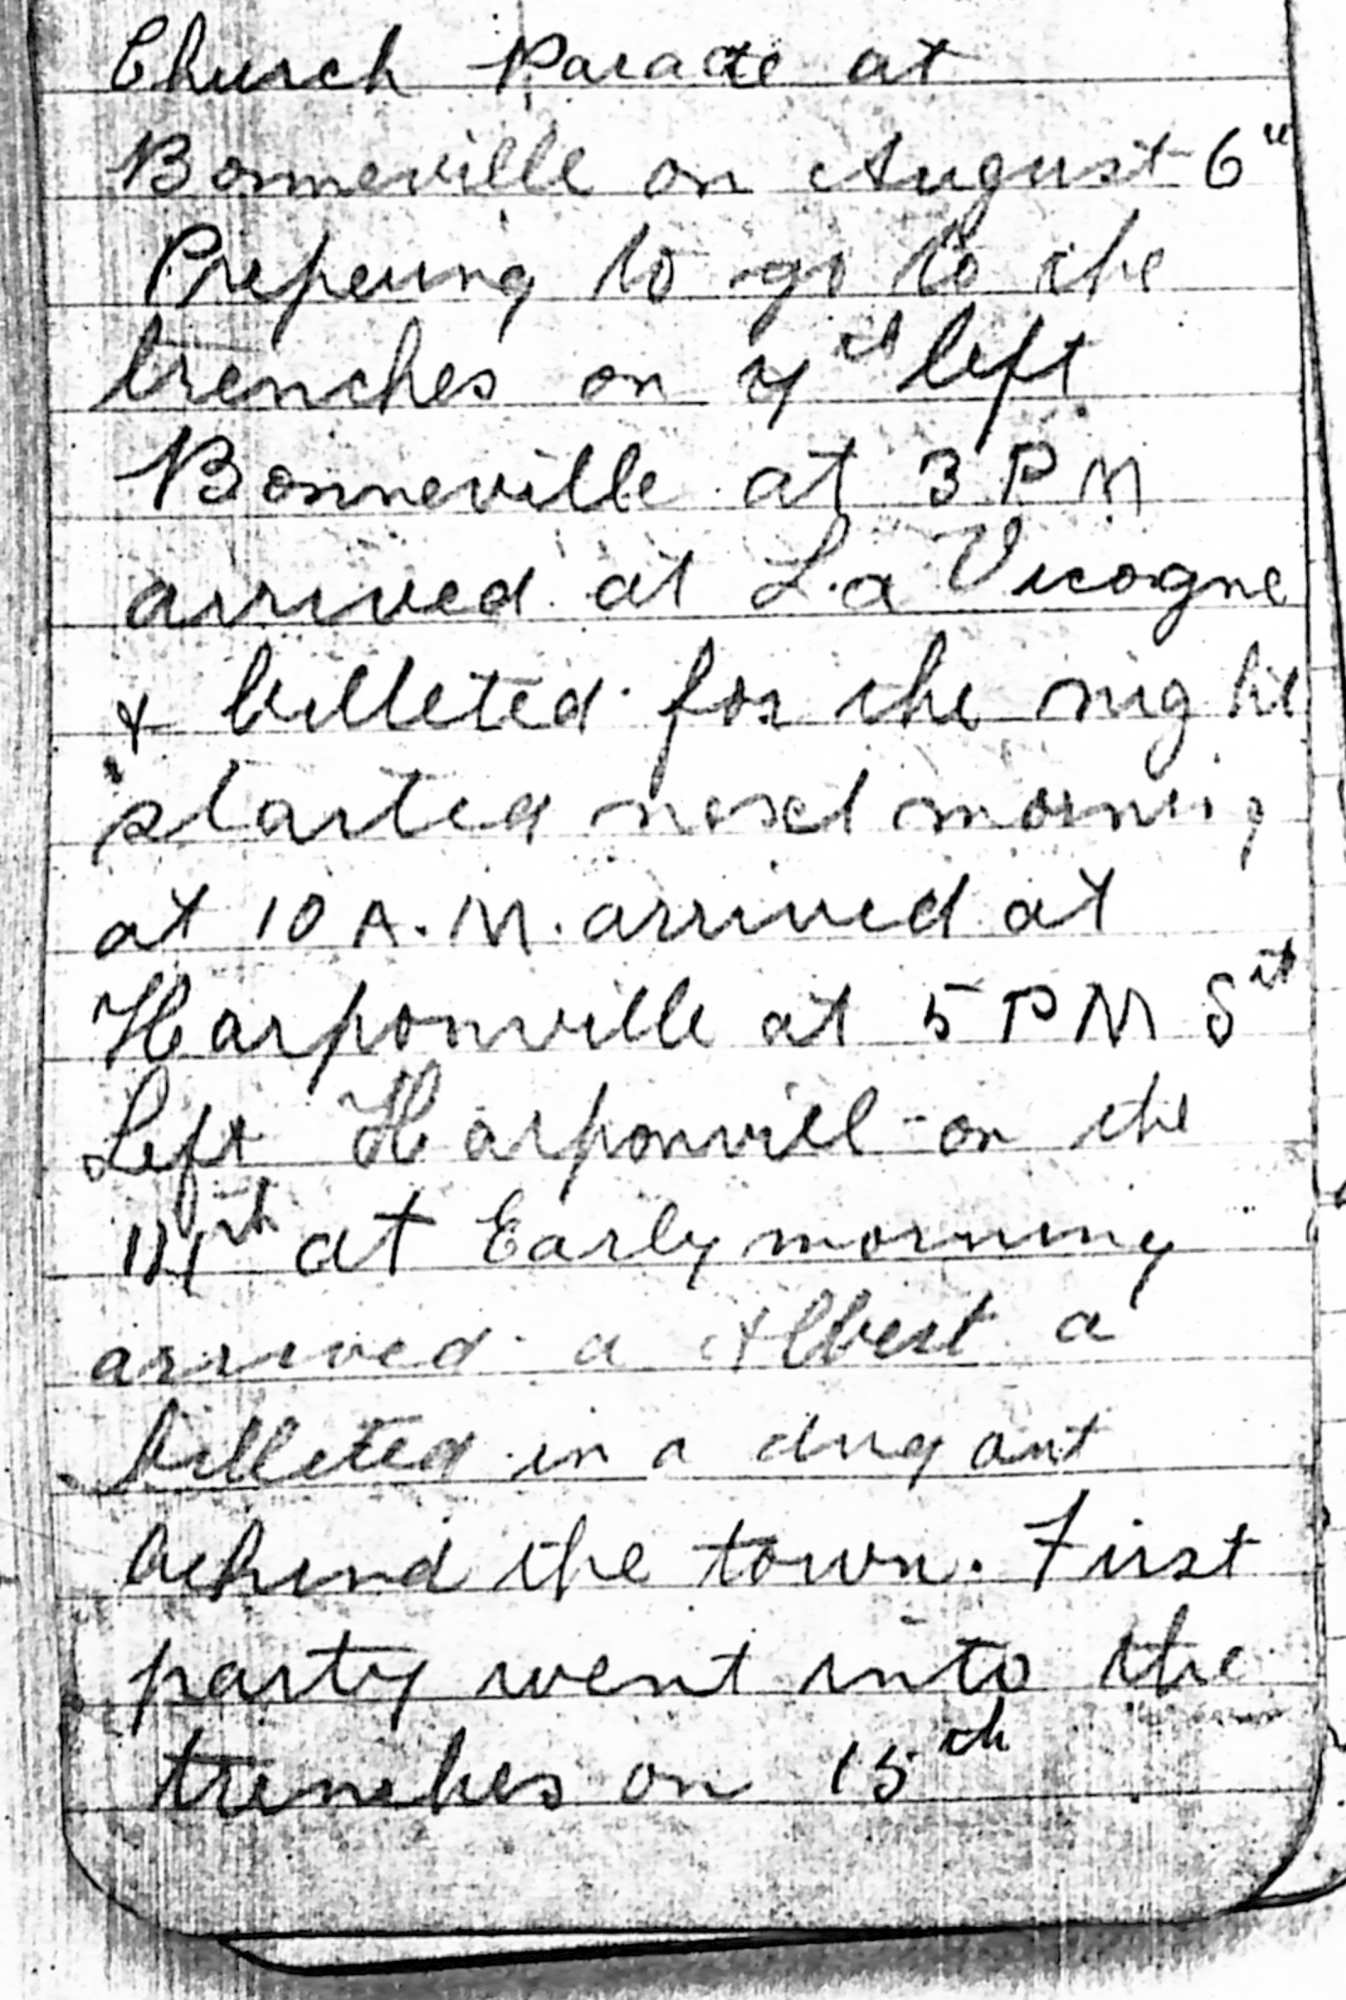 Church Parade at
Bonneville on August 6th
Prepering to go to the
trenches on 7th left
Bonneville at 3 P M
arrived at La Vicogne
& billeted for the night
started next morning
at 10 A.M. arrived at
Harponville at 5 P M 8th
Left Harponvill on the
at Early morning
arrived a Albert a
billeted in a dug out
behind the town. First
party went into the
trenches on 15th